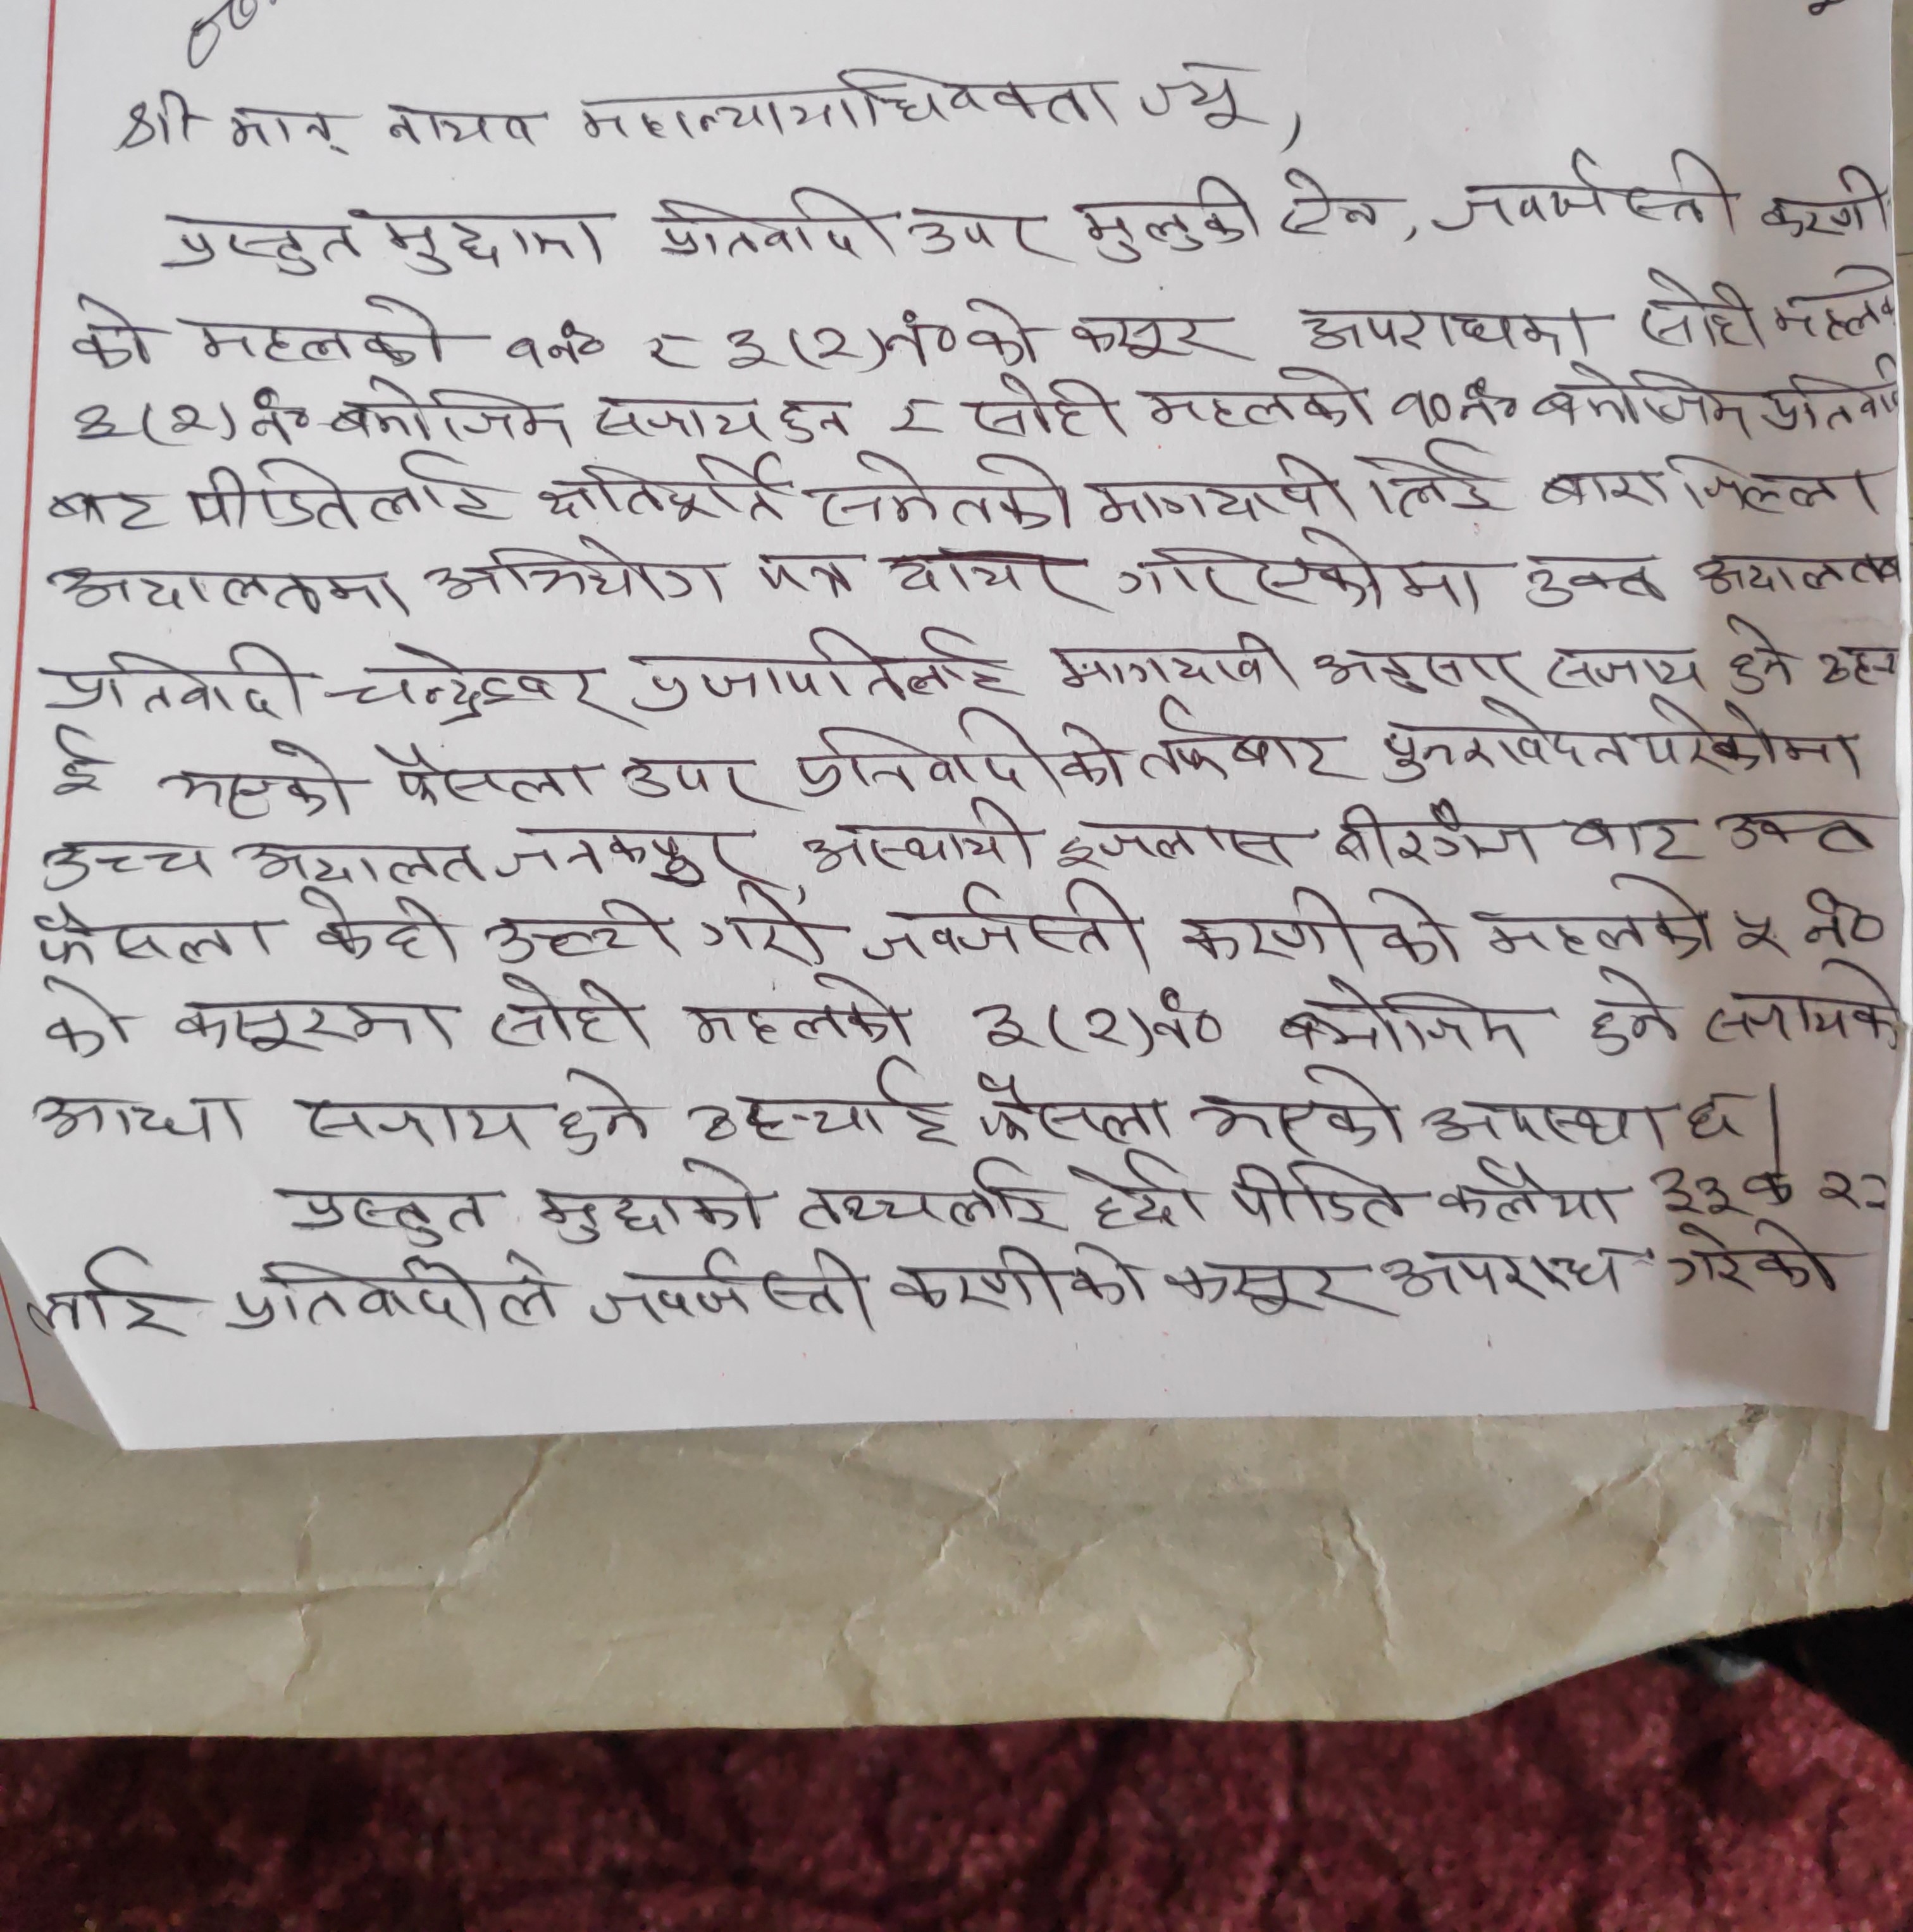 श्री मान् नायव महान्यायाधिवक्ता ज्यू,
प्रस्तुत मुद्दामा प्रतिवादी उपर मुलुकी ऐन, जवर्जस्ती करणी
को महलको १नं० र ३(२)नं०को कसूर अपराधमा सोही महलको
३(२)नं० बमोजिम सजाय हुन र सोही महलको १०नं० बमोजिम
बाट पीडितलाई क्षतिपूर्ति समेतको मागदावी लिई बारा जिल्ला
अदालतमा अभियोग पत्र दायर गरिएकोमा उक्त
प्रतिवादी चन्द्रेश्वर प्रजापतिलाई मागदावी अनुसार सजाय हुने
ई भएको फैसला उपर प्रतिवादीको तर्फबाट पुनरावेदन परेकोमा
उच्च अदालत जनकपुर, अस्थायी इजलास बीरगंज बाट उक्त
फैसला केही उल्टी गरी जवर्जस्ती करणीको महलको ५ नं०
को कसूरमा सोही महलको ३(२)नं० बमोजिम हुने सजायको
आधा सजाय हुने ठहर्‍याई फैसला भएको अवस्था छ।
प्रस्तुत मुद्दाको तथ्यलाई हेर्दा पीडित कलैया ३३क
लाई प्रतिवादीले जवर्जस्ती करणीको कसूर अपराध गरेको